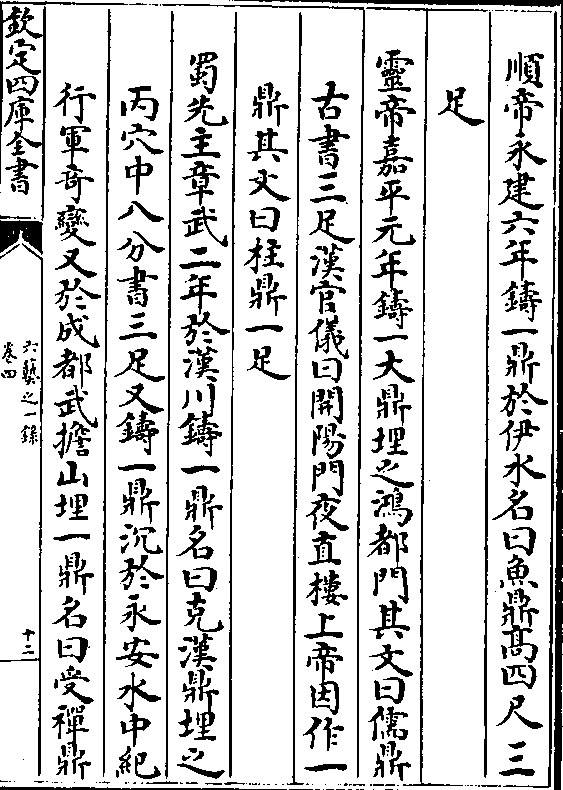 順帝永建六年鑄一鼎於伊水名曰魚鼎髙四尺三
足
靈帝嘉平元年鑄一大鼎埋之鴻都門其文曰儒鼎
古書三足漢官儀曰開陽門夜直樓上帝因作一
鼎其文曰柱鼎一足
蜀先主章武二年於漢川鑄一鼎名曰克漢鼎埋之
丙穴中八分書三足又鑄一鼎沉於永安水中紀
行軍竒變又於成都武擔山埋一鼎名曰受禪鼎
欽定四庫全書
六藝之一錄
卷四
十二